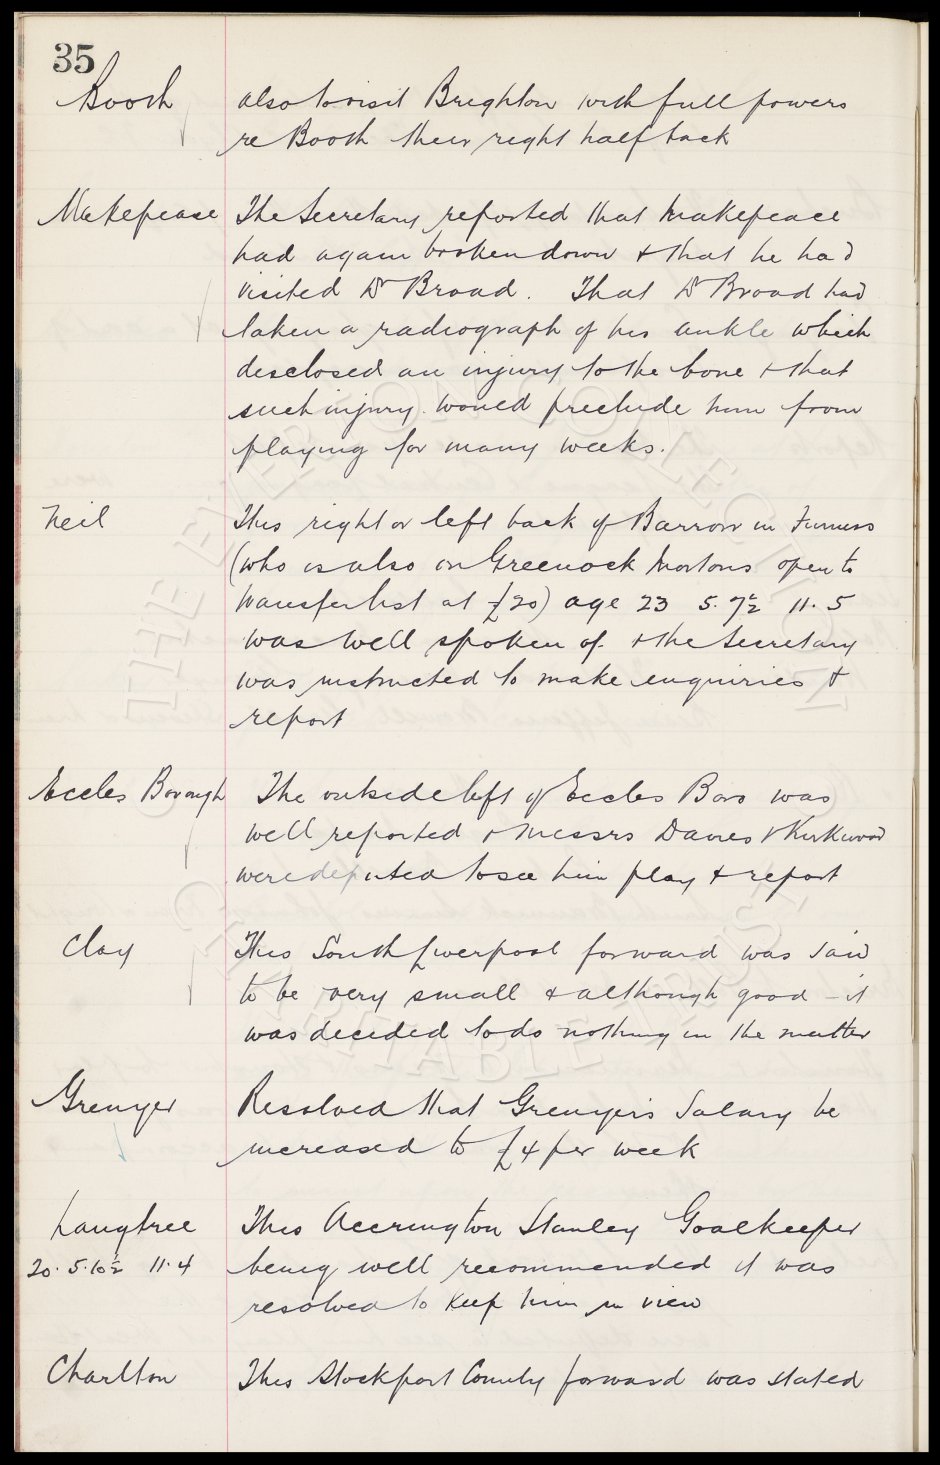 35
Booth also to visit Brighton with full powers
re Booth their right half back
Makepeace The Secretary reported that Makepeace
had again broken down & that he had
visited Dr Broad. That Dr Broad had
taken a radiograph of his ankle which
disclosed an injury to the bone & that
such injury would preclude him from
playing for many weeks.
Neil This right or left back of Barrow in Furness
(who is also on Greenock Mortons open to
transfer list at £20) age 23 5.7½ 11.5
was well spoken of & the Secretary
was instructed to make enquiries &
report
Eccles Borough The outside left of Eccles Boro was
well reported & Messrs Davies & Kirkwood
were deputed to see him play & report
Clay This South Liverpool forward was said
to be very small & although good - it
was decided to do nothing in the matter
Grenyer Resolved that Grenyer's Salary be
increased to £4 per week
Langtree This Accrington Stanley Goalkeeper
20. 5.10½ 11.4 being well recommended it was
resolved to keep him in view
Charlton This Stockport County forward was stated
THE EVERTON COLLECTION
CHARITABLE TRUST